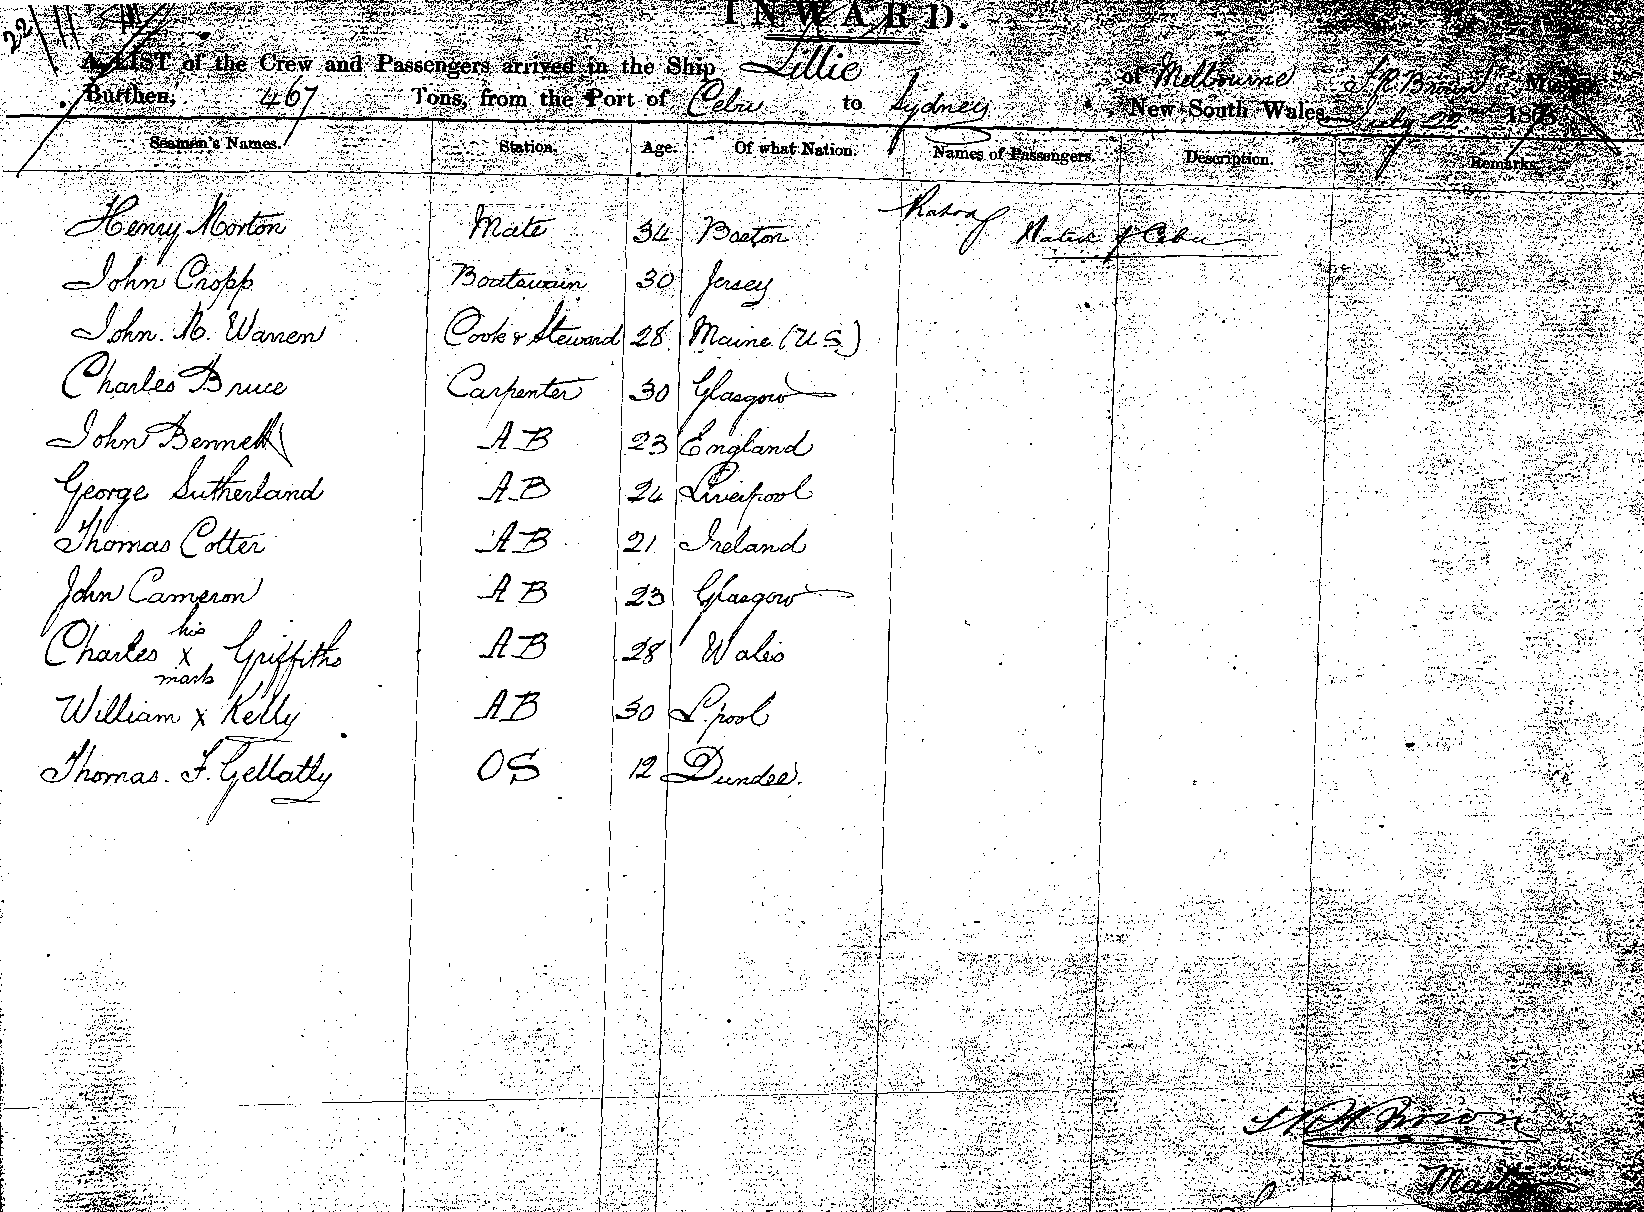 22
INWARD.
A LIST of the Crew and Passengers arrived in the Ship Lillie of Melbourne Master
Burthen, 467 Tons, from the Port of Cebu to Sydney New South Wales, July 22 187
Seamen's Names. Station. Age. Of what Nation. Names of Passengers. Description. Remarks.
Henry Morton Mate 34 Boston
Native of Cebu
John Cropp Boatswain 30 Jersey
John. N. Warren Cook & Steward 28 Maine (U S.)
Charles Bruce Carpenter 30 Glasgow
John Bennett A B 23 England
George Sutherland A B 24 Liverpool
Thomas Cotter A B 21 Ireland
John Cameron A B 23 Glasgow
his
Charles x Griffiths A B 28 Wales
mark
William x Kelly A B 30 L.pool
Thomas. F. Gellatly O S 12 Dundee.
Brown
Master